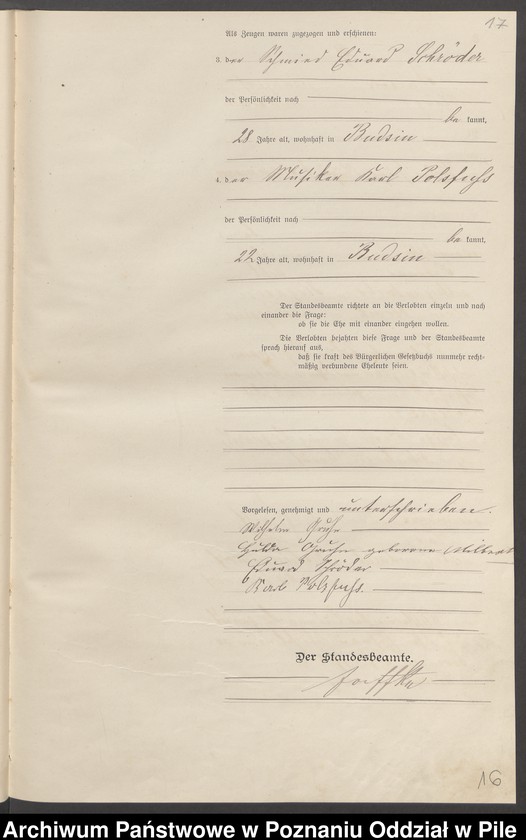 17
Als Zeugen waren zugezogen und erschienen:
3. der Schmied Eduard Schröder
der Persönlichkeit nach
be kannt,
28 Jahre alt, wohnhaft in Budsin
4. der Musiker Karl Polzfuhs
der Persönlichkeit nach
be kannt,
22 Jahre alt, wohnhaft in Budsin
Der Standesbeamte richtete an die Verlobten einzeln und nach
einander die Frage:
ob sie die Ehe mit einander eingehen wollen.
Die Verlobten bejahten diese Frage und der Standesbeamte
sprach hierauf aus,
daß sie kraft des Bürgerlichen Gesetzbuchs nunmehr recht-
mäßig verbundene Eheleute seien.
Vorgelesen, genehmigt und unterschrieben.
Wilhelm
Hulda geborene
Eduard Schröder
Karl Polzfuhs.
Der Standesbeamte.
16
Archiwum Państwowe w Poznaniu Oddział w Pile